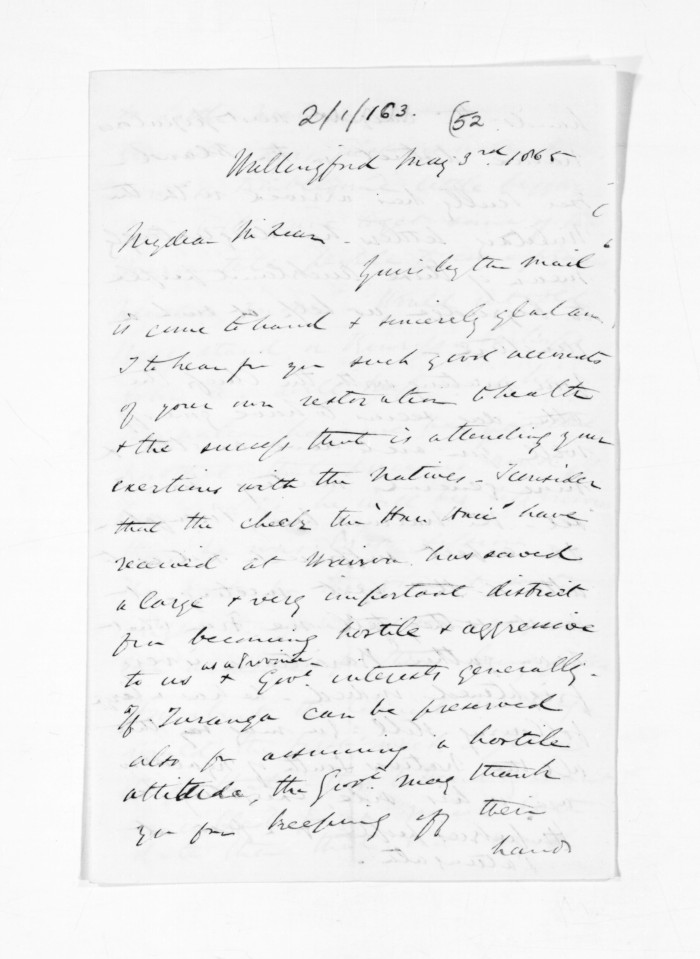 2/1/163. (52
Wallingford May 3rd. 1865
My dear McLean -
Yours by the mail
is come to hand & sincerely glad am
I to hear fr you such good accounts
of your own restoration to health
& the success that is attending your
exertions with the Natives - I consider
that the check the "Hau Hau" have
received at Wairoa has saved
a large & very important district
frm becoming hostile & aggressive
as a Province
to us & Govt. interests generally -
If Turanga can be preserved
also fr assuming a hostile
attitude, the Govt. may thank
you for keeping off their
hands